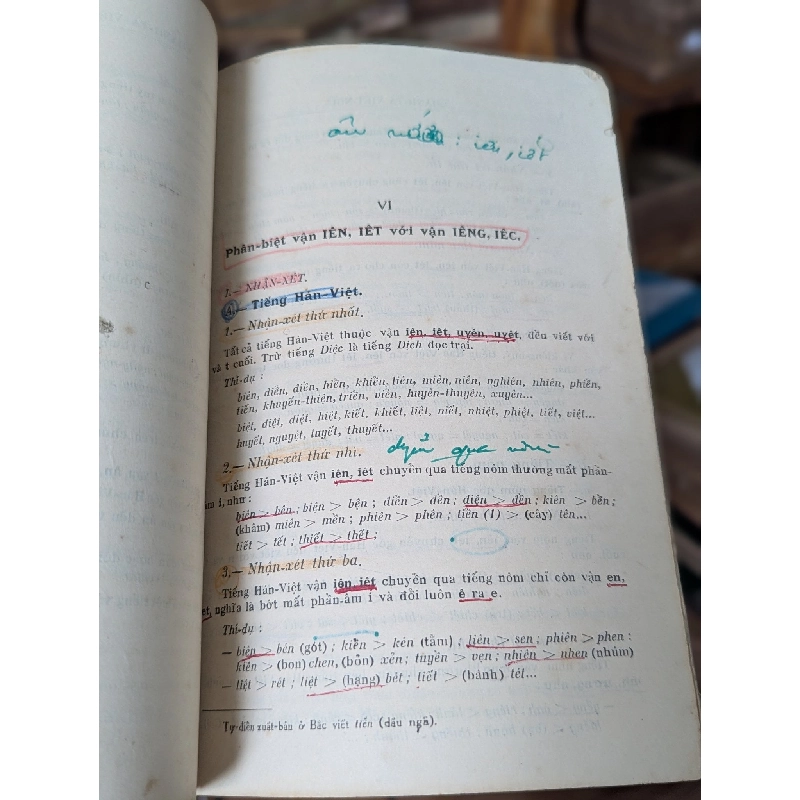 âm : iên, iêt
VI
Phân-biệt vận IÊN, IÊT với vận IÊNG, IÊC.
I.— NHẬN-XÉT.
A.— Tiếng Hán-Việt.
1.— Nhận-xét thứ nhất.
Tất cả tiếng Hán-Việt thuộc vận iên, iêt, uyên, uyêt, đều viết với
và t cuối. Trừ tiếng Diệc là tiếng Dich đọc trại.
Thí-dụ :
biên, diên, điên, hiên, khiên, liên, miên, niên, nghiên, nhiên, phiên,
tiên, khuyên-thiên, triền, viên, huyên-thuyên, xuyên...
biệt, diệt, điệt, hiệt, kiết, khiết, liệt, niết, nhiệt, phiệt, tiết, việt...
huyết, nguyệt, tuyết, thuyết...
chuyển qua nôm
2.— Nhận-xét thứ nhì.
Tiếng Hán-Việt vận iên, iêt chuyển qua tiếng nôm thường mất phần-
âm i, như :
biên > bên; biện > bện ; diễn > đến ; điện > đền ; kiên > bền ;
(khâm) miên > mền ; phiên > phên ; tiên (1) > (cây) tên...
tiết > tết ; thiết > thết ;
3.— Nhận-xét thứ ba.
Tiếng Hán-Việt vận iên, iêt chuyển qua tiếng nôm chỉ còn vận en,
et, nghĩa là bớt mất phần-âm i và đổi luôn ê ra e.
Thí-dụ :
— biên > bén (gót) ; kiển > kén (tằm) ; liên > sen ; phiên > phen ;
kiên > (bon) chen, (bỏn) xẻn ; tuyền > vẹn ; nhiên > nhen (nhúm)
— liệt > rét ; liệt > (hạng) bét ; tiết > (bánh) tét...
Tự-điển xuất-bản ở Bắc viết tiễn (dấu ngã).